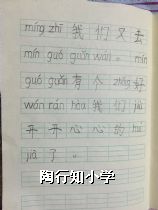 míng zhī 我们又去
mín guó guǎn wán。 mín
guó guǎn 有个 zhǎng 好
wón nán hòa 我们 jiù
开开心心的 huí
jiā 了。
陶行知小学